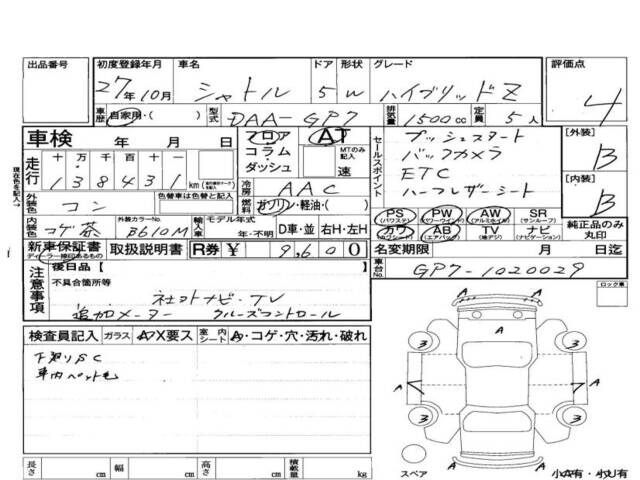 出品番号 初度登録年月 車名 ドア 形状 グレード 評価点
27年10月 シャトル 5 W ハイブリッドZ 4
車歴 自家用・( ) 型式 DAA-GP7 排気量 1500cc 定員 5人
車検 年 月 日 フロア コラム・ダッシュ AT MTのみ記入 速
セールスポイント
プッシュスタート
バックカメラ
ETC
ハーフレザーシート
[外装] B
[内装] B
現在色を記入→
走行 十 万 千 百 十 一
138431 km
外装色 コン 色替車は色替と記入
冷房 AAC
燃料 ガソリン・軽油・( )
内装色 コゲ茶 外装カラーNo. B610M
輸入車 モデル年式 年・不明 D車・並 右H・左H
PS (パワステ) PW (パワーウインド) AW (アルミホイル) SR (サンルーフ)
カワ (カワシート) AB (エアバッグ) TV (地デジ) ナビ (ナビゲーション)
純正品のみ丸印
新車保証書 ディーラー捺印あるもの 取扱説明書 R券 ¥ 9,600
名変期限 月 日迄
注意事項 後日品【 】
不具合箇所等
社外ナビ・TV
追加メーター クルーズコントロール
車台No. GP7-1020029
ロック車
検査員記入 ガラス A・X要ス 室内シート A・コゲ・穴・汚れ・破れ
下廻りSC
車内ペット毛
A
A
3 3
A A
3 3
A
スペア 小A有・小U有
長さ cm 幅 cm 高さ cm 積載量 kg